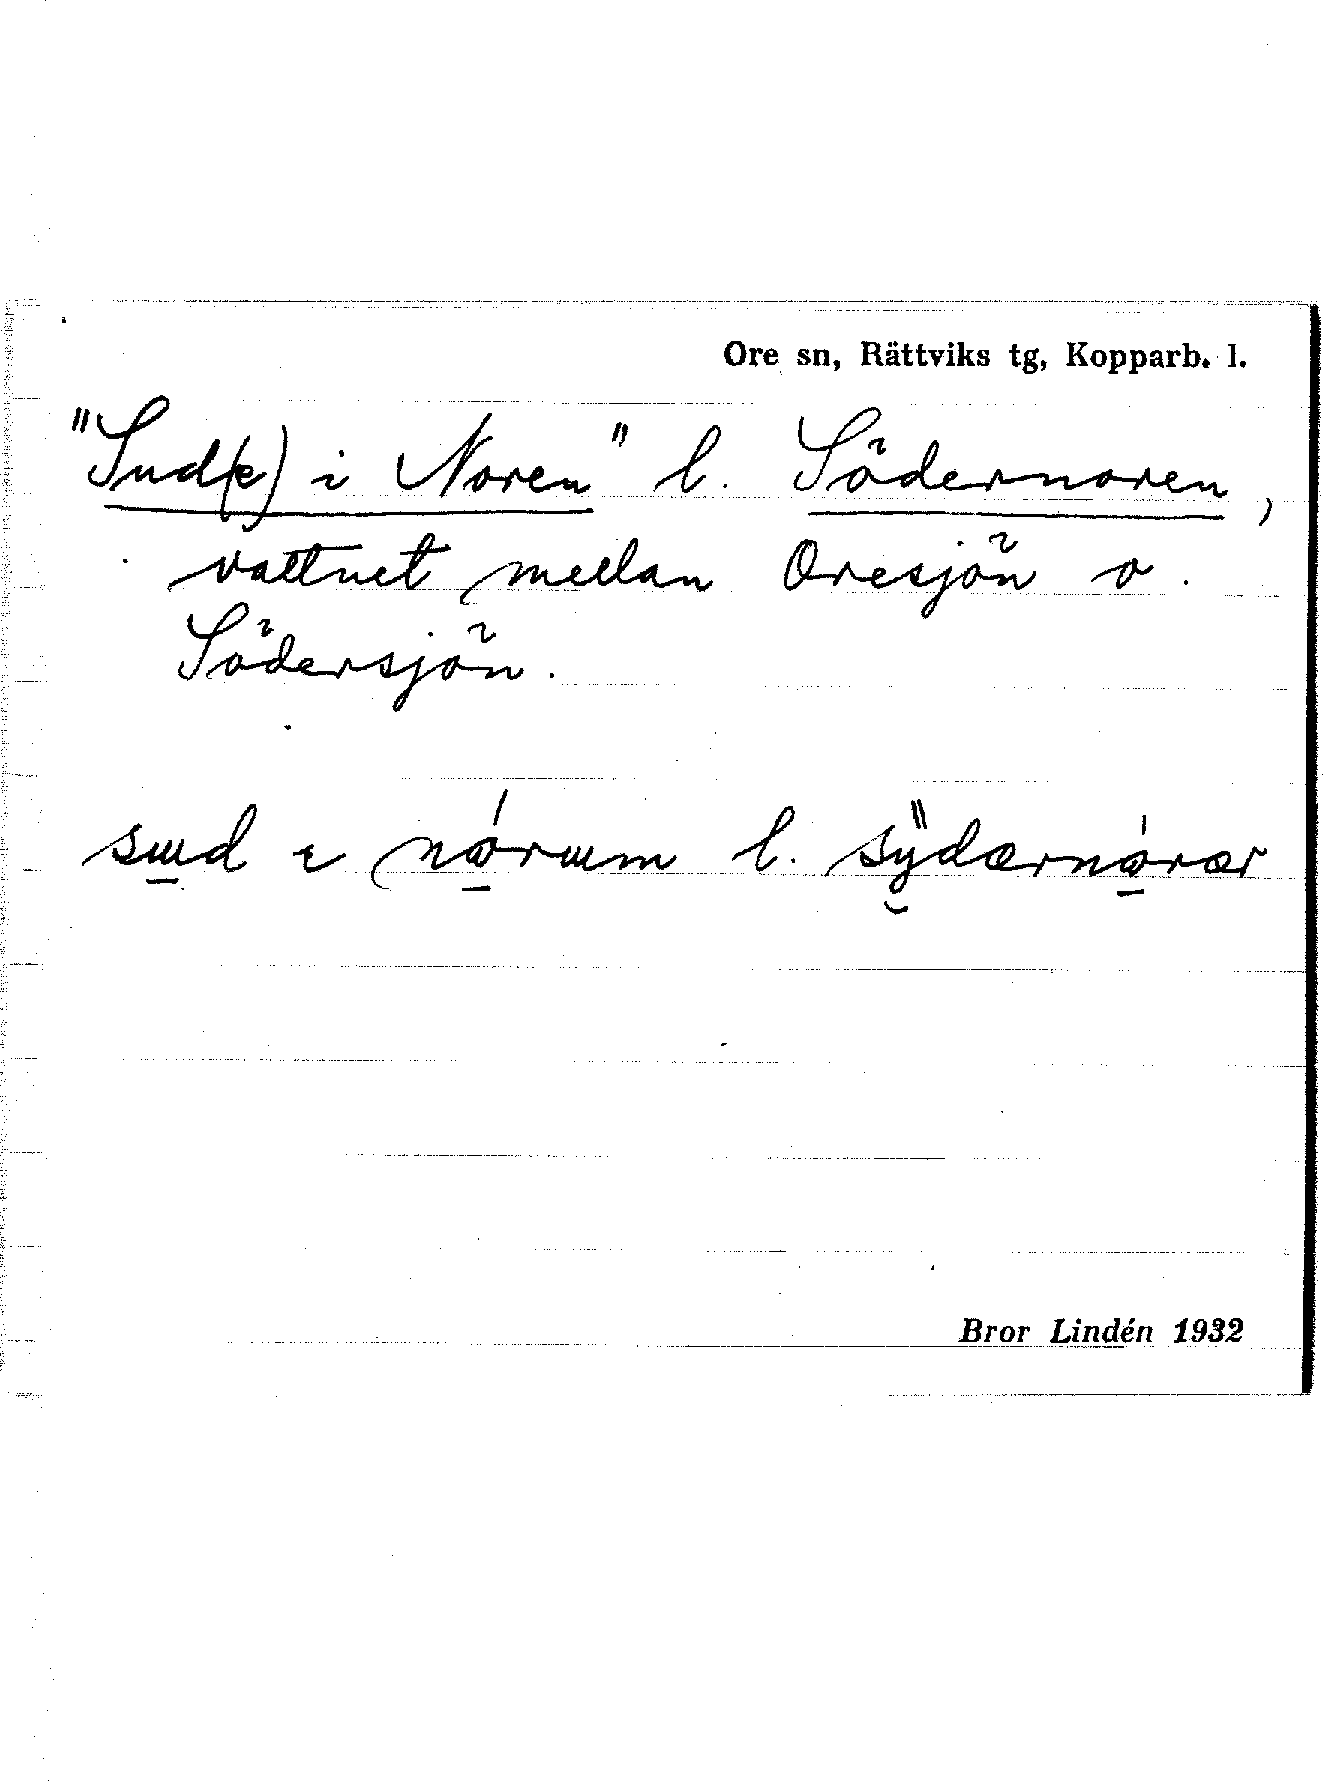 Ore sn, Rättviks tg, Kopparb. l.
"Sud(e) i Noren" l. Södernoren,
vattnet mellan Oresjön o.
Södersjön.
sɯd ɩ nórɯm l. sÿdærnórær
Bror Lindén 1932